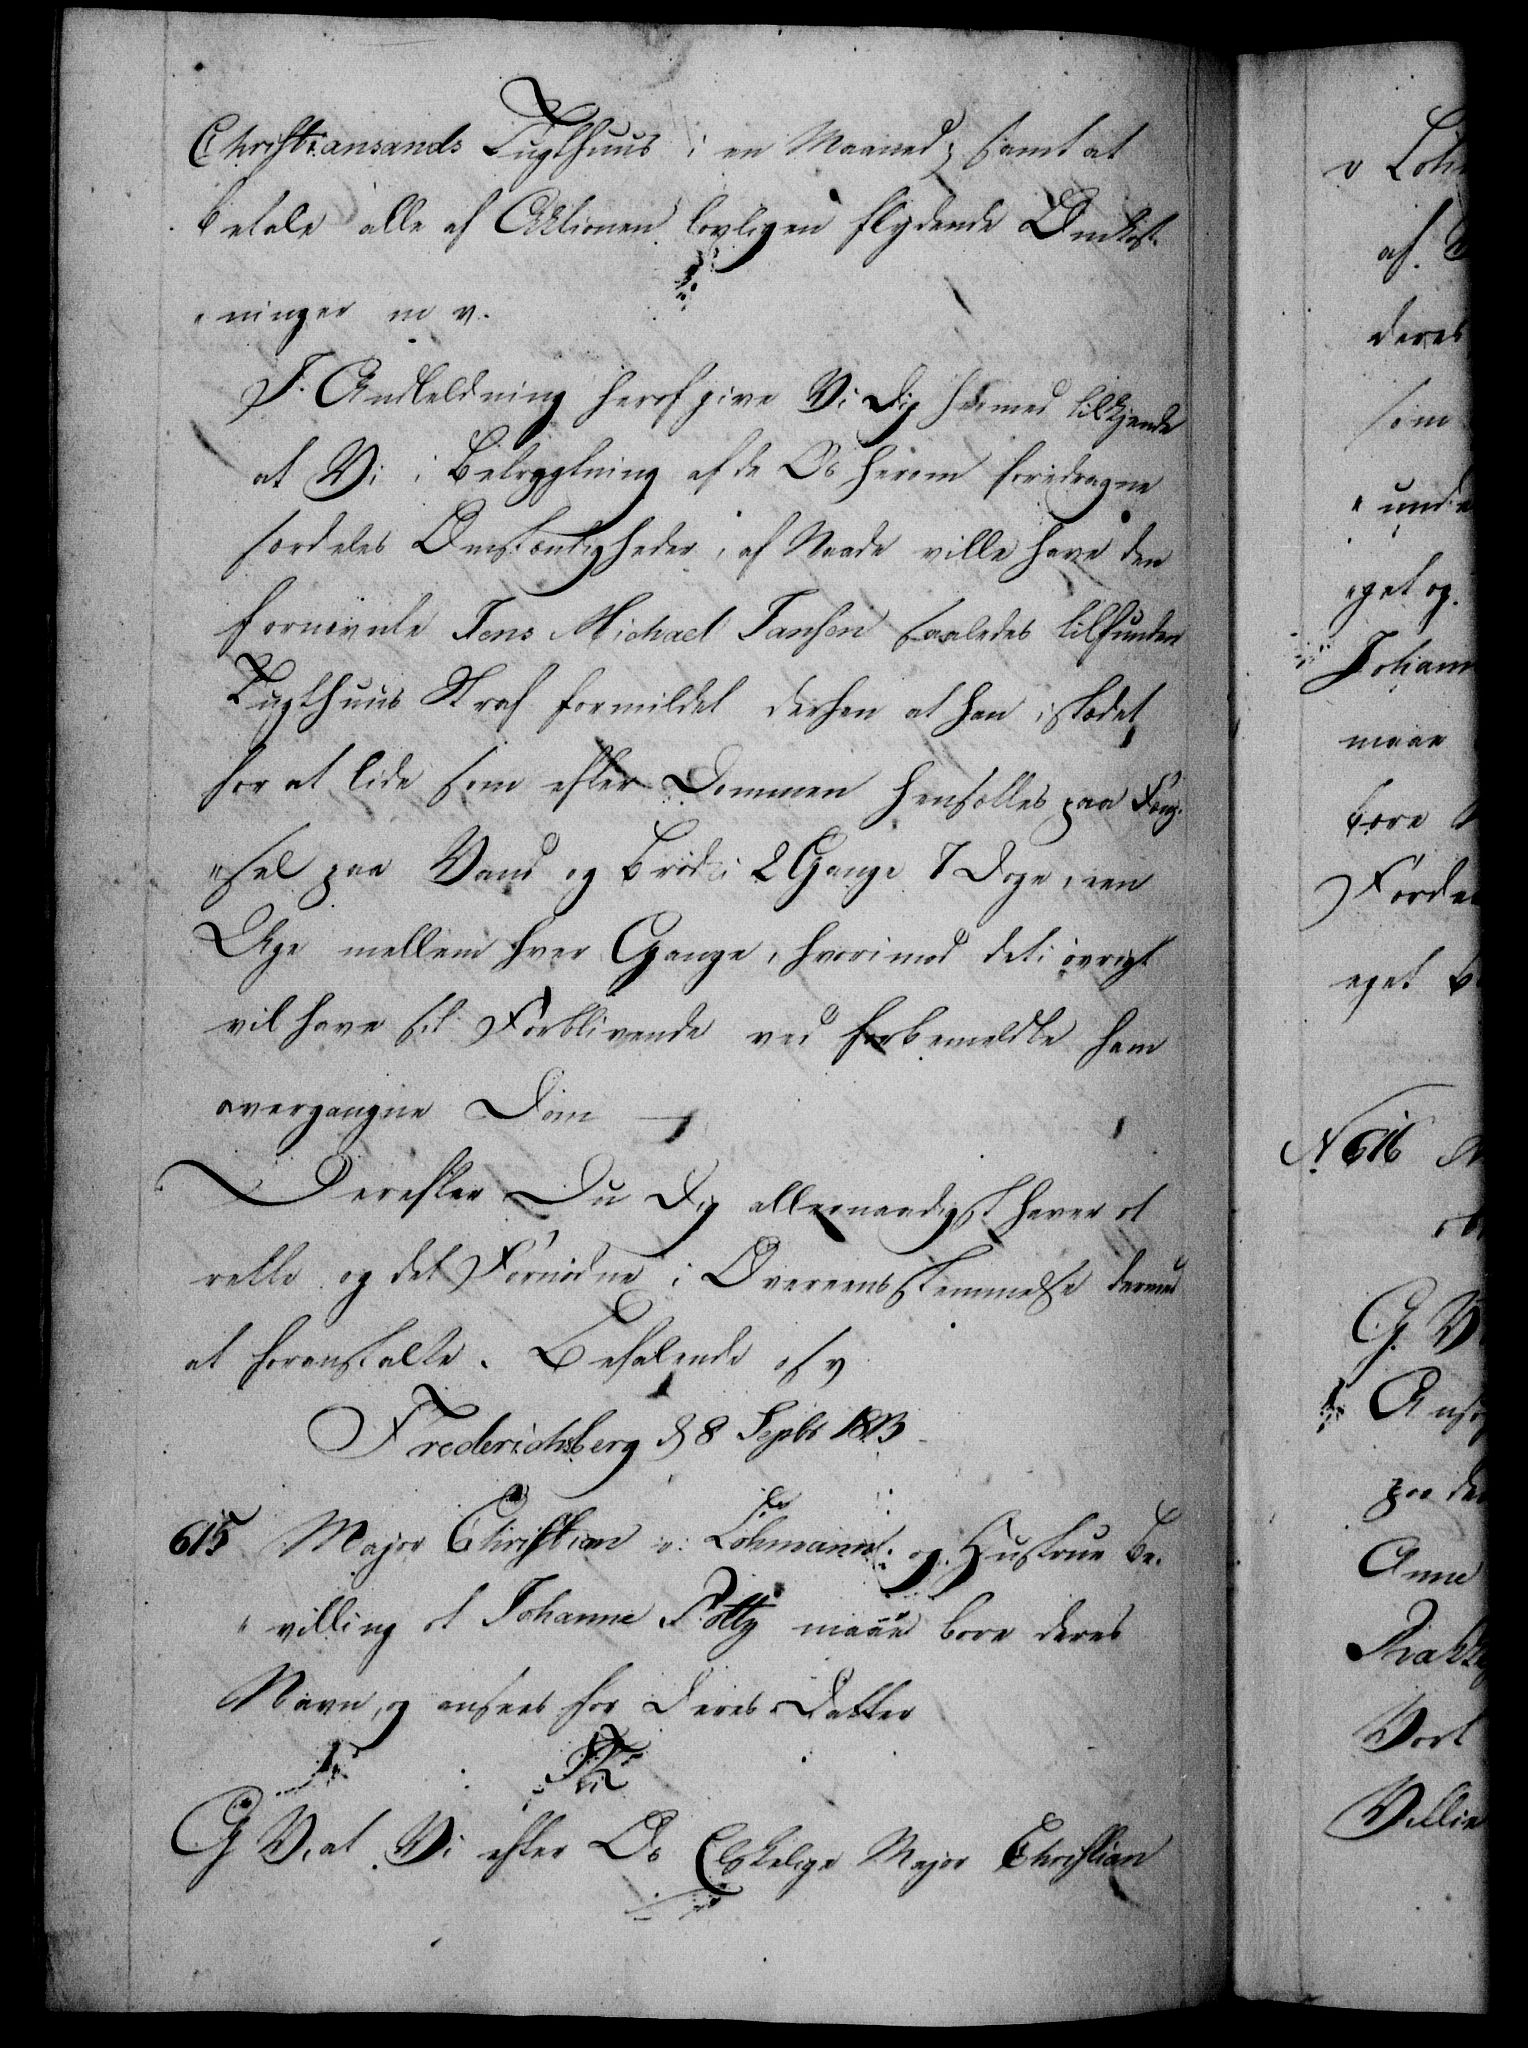 Christiansands Tugthuus i en Maaned, samt at
betale alle af Aktionen lovligen flydende Omkost-
ninger m v.
I Andledning heraf give Vi Dig hermed tilkjende
at Vi i Betragtning af de Os herom foredragne
særdeles Omstændigheder, af Naade ville have den
fornævnte Jens Michael Jansen saaledes tilfunden
Tugthuus Straf formildet derhen at han istedet
for at lide som efter Dommen hensættes paa Fæng-
sel paa Vand og Brød i 2 Gange 7 Dage, een
Uge mellem hver Gange, hvorimod det i øvrigt
vil have sit Forblivende ved forbemeldte ham
overgangne Dom
Derefter Du Dig allernaadigst haver at
rette og det Fornødne i Overeensstemmelse dermed
at foranstalte. Befalende osv
Frederichsberg d 8 Septbr 1813
615 Major Christian v: Lohmann og Hustrue Be-
villing at Johanne maae bære deres
Navn, og ansees for deres Datter
G V, at Vi efter Os Elskelige Major Christian
v Lohm
af
deres
som
und
eget og
Johann
maae
bære
Forde
eget
N 616
G. V
Ansøg
paa de
Anne
Vort
Villie